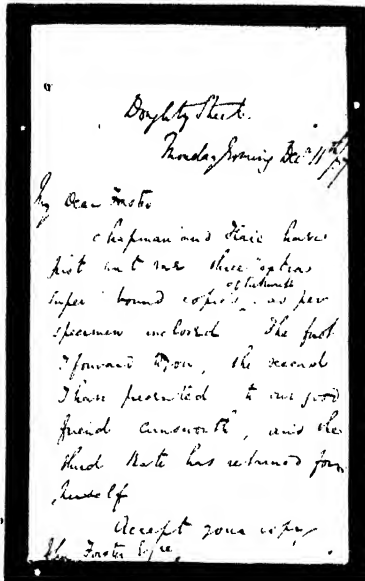 Doughty Street.
Monday Evening Decr 11th /37
My Dear Forster
Chapman and Hall have
just sent me three "extra
super" bound copies of Pickwick, as per
specimen inclosed. The first
I forward to you, the second
I have presented to our good
friend Ainsworth, and the
third Kate has retained for
herself
Accept your copy
John Forster Esqre